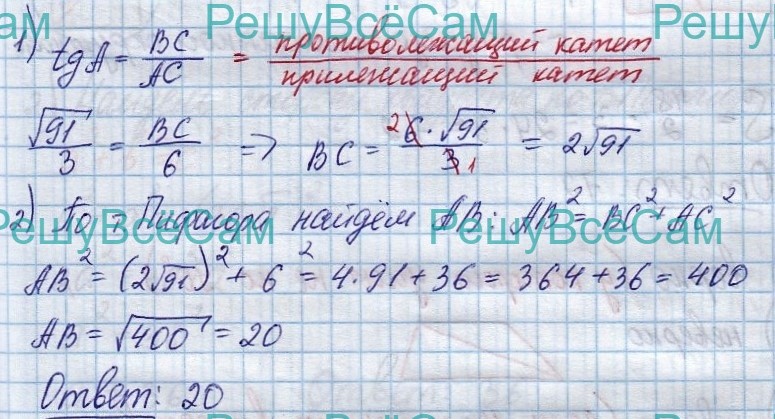 РешуВсёСам РешуВсёСам
1) tgA = BC/AC = противолежащий катет/прилежащий катет
√91/3 = BC/6 => BC = 6·√91/3 = 2√91
2 1
2) По т Пифагора найдём AB: AB² = BC² + AC²
РешуВсёСам РешуВсёСам
AB² = (2√91)² + 6² = 4·91 + 36 = 364 + 36 = 400
AB = √400 = 20
Ответ: 20
РешуВсёСам РешуВсёСам